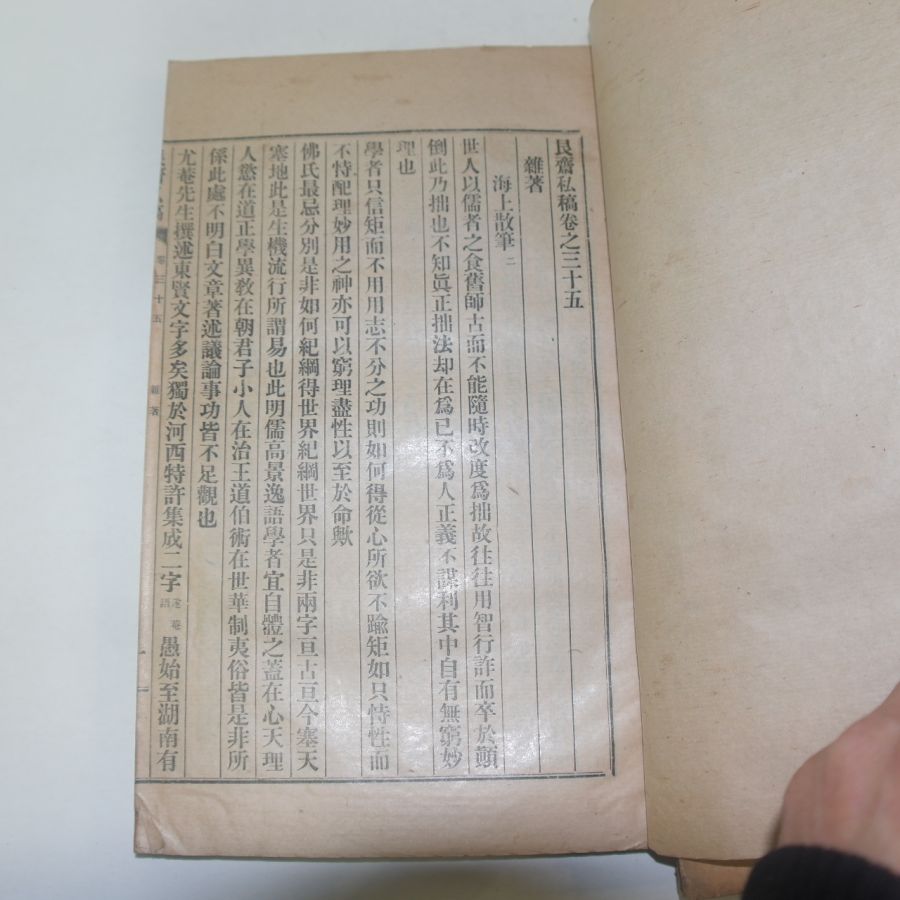 艮齋私稿卷之三十五
雜著
海上散筆 二
世人以儒者之食舊師古而不能隨時改度爲拙故往往用智行許而卒於顚
倒此乃拙也不知眞正拙法却在爲已不爲人正義不謀利其中自有無窮妙
理也
學者只信矩而不用用志不分之功則如何得從心所欲不踰矩如只恃性而
不恃配理妙用之神亦可以窮理盡性以至於命歟
佛氏最忌分別是非如何紀綱得世界紀綱世界只是非兩字亘古亘今塞天
塞地此是生機流行所謂易也此明儒高景逸語學者宜自體之蓋在心天理
人慾在道正學異敎在朝君子小人在治王道伯術在世華制夷俗皆是非所
係此處不明白文章著述議論事功皆不足觀也
尤菴先生撰述東賢文字多矣獨於河西特許集成二字 愚始至湖南有
卷三十五
雜著
一